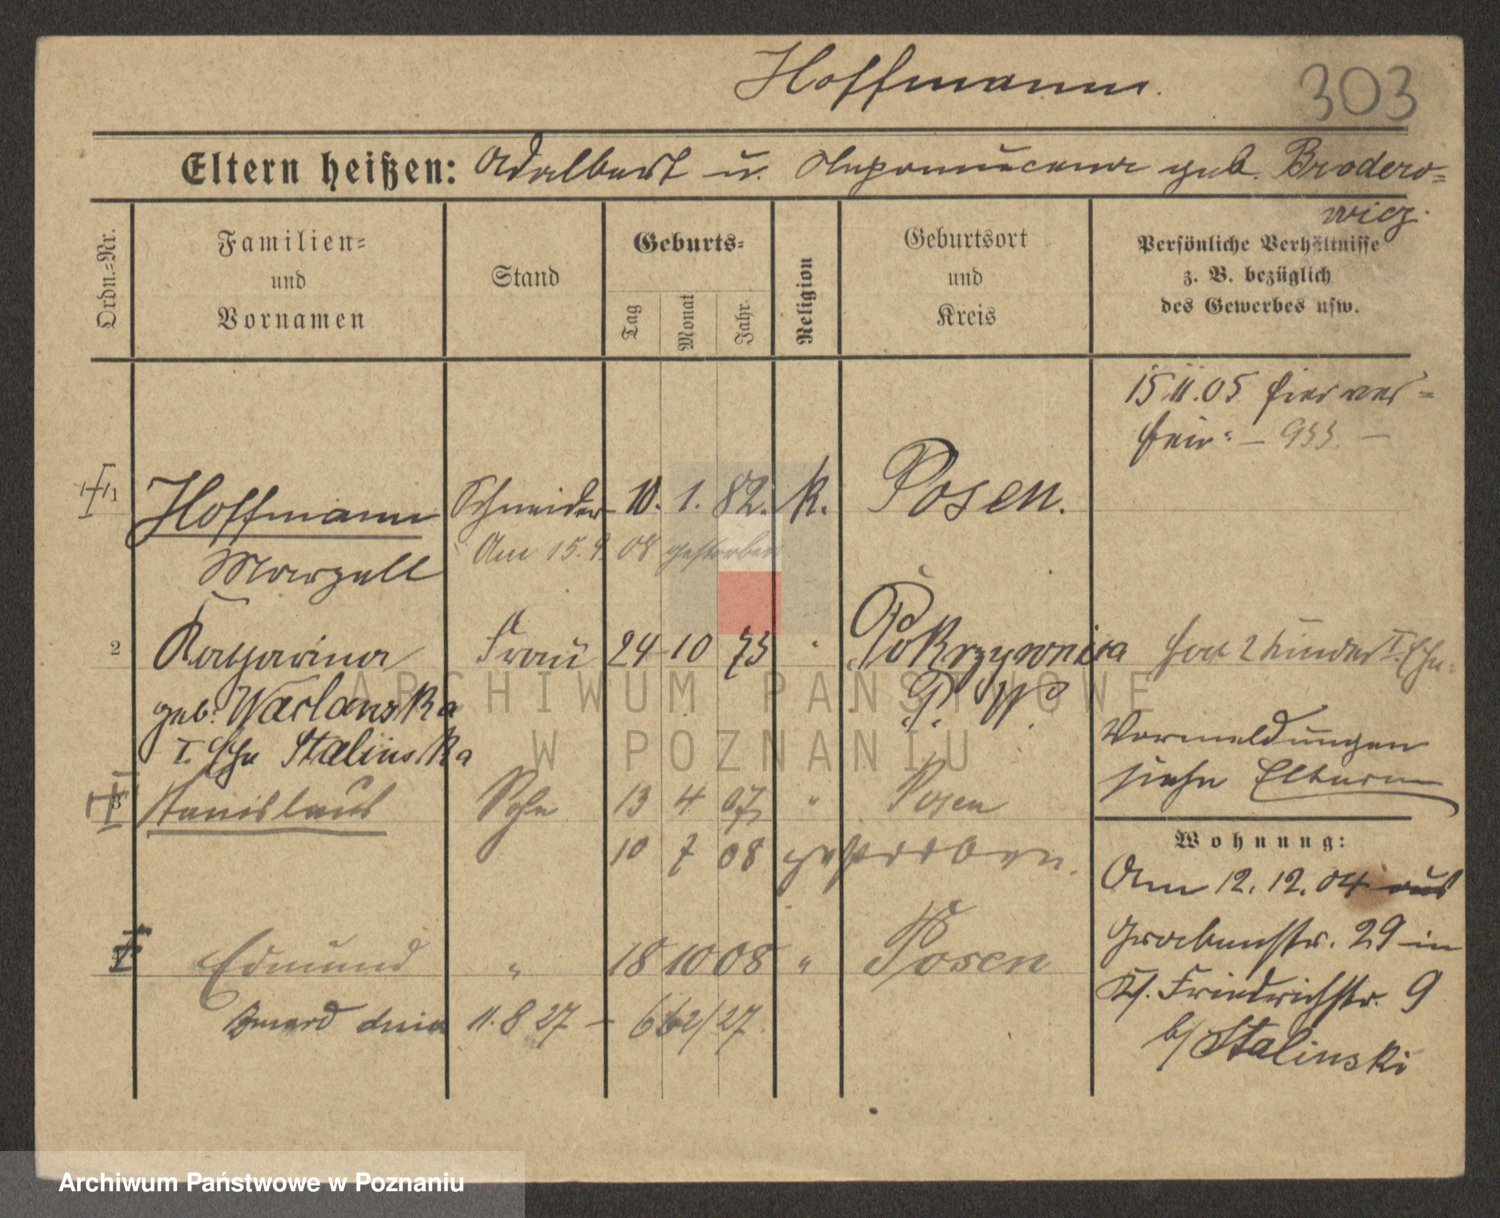 Hoffmann.
303
Eltern heißen: Adalbert u. Nepomucena geb. Brodero=
wicz.
Ordn.=Nr.
Familien=
und
Vornamen
Stand
Geburts=
Tag
Monat
Jahr
Religion
Geburtsort
und
Kreis
Persönliche Verhältnisse
z. B. bezüglich
des Gewerbes usw.
15.11.05 hier ver=
heir: – 933. –
1 Hoffmann Schneider 10. 1. 82. k. Posen.
Marzell Am 15. 9. 08 gestorben
2 Katharina Frau 24 10 73 " Pokrzywnica hat 2 Kinder I. Ehe.
geb. Warlanska P. W.
I. Ehe Stalinska
Vormeldungen
siehe Eltern
3 Stanislaus Sohn 13 4 07 " Posen
10 7 08 gestorben.
Edmund " 18 10 08 " Posen
zmarł dnia 11.8 27 – 662/27.
Wohnung:
Am 12. 12. 04 aus
Grabenstr. 29 in
Kl. Friedrichstr. 9
b/ Stalinski
ARCHIWUM PAŃSTWOWE
W POZNANIU
Archiwum Państwowe w Poznaniu